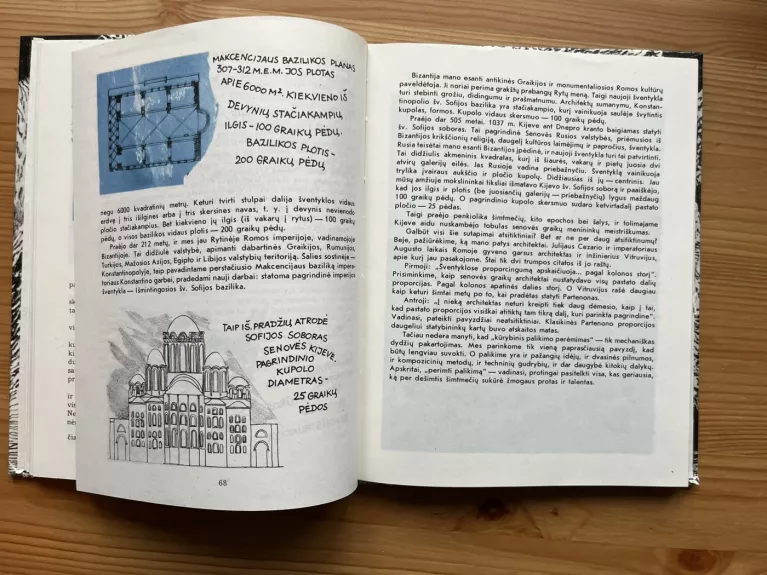 MAKCENCIJAUS BAZILIKOS PLANAS
307-312 M.E.M. JOS PLOTAS
APIE 6000 M². KIEKVIENO IŠ
DEVYNIŲ STAČIAKAMPIŲ
ILGIS - 100 GRAIKŲ PĖDŲ,
BAZILIKOS PLOTIS -
200 GRAIKŲ PĖDŲ
negu 6000 kvadratinių metrų. Keturi tvirti stulpai dalija šventyklos vidaus
erdvę į tris išilgines arba į tris skersines navas, t. y. į devynis nevienodo
pločio stačiakampius. Bet kiekvieno jų ilgis (iš vakarų į rytus) — 100 graikų
pėdų, o visos bazilikos vidaus plotis — 200 graikų pėdų.
Praėjo dar 212 metų, ir mes jau Rytinėje Romos imperijoje, vadinamojoje
Bizantijoje. Tai didžiulė valstybė, apimanti dabartinės Graikijos, Rumunijos,
Turkijos, Mažosios Azijos, Egipto ir Libijos valstybių teritoriją. Šalies sostinėje —
Konstantinopolyje, taip pavadintame perstačiusio Makcencijaus baziliką impera-
toriaus Konstantino garbei, pradedami nauji darbai: statoma pagrindinė imperijos
šventykla — Išmintingosios šv. Sofijos bazilika.
TAIP IŠ PRADŽIŲ ATRODĖ
SOFIJOS SOBORAS
SENOVĖS KIJEVE.
PAGRINDINIO
KUPOLO
DIAMETRAS -
25 GRAIKŲ
PĖDOS
68
Bizantija mano esanti antikinės Graikijos ir monumentaliosios Romos kultūrų
paveldėtoja. Ji noriai perima grakštų prabangų Rytų meną. Taigi naujoji šventykla
turi stebinti grožiu, didingumu ir prašmatnumu. Architektų sumanymu, Konstan-
tinopolio šv. Sofijos bazilika yra stačiakampio, kurį vainikuoja saulėje švytintis
kupolas, formos. Kupolo vidaus skersmuo — 100 graikų pėdų.
Praėjo dar 505 metai. 1037 m. Kijeve ant Dnepro kranto baigiamas statyti
šv. Sofijos soboras. Tai pagrindinė Senovės Rusios valstybės, priėmusios iš
Bizantijos krikščionių religiją, daugelį kultūros laimėjimų ir papročius, šventykla.
Rusia teisėtai mano esanti Bizantijos įpėdinė, ir naujoji šventykla turi tai patvirtinti.
Tai didžiulis akmeninis kvadratas, kurį iš šiaurės, vakarų ir pietų juosia dvi
atvirų galerijų eilės. Jas Rusioje vadina priebažnyčiu. Šventyklą vainikuoja
trylika įvairaus aukščio ir pločio kupolų. Didžiausias iš jų — centrinis. Jau
mūsų amžiuje mokslininkai tiksliai išmatavo Kijevo šv. Sofijos soborą ir paaiškėjo,
kad jos ilgis ir plotis (be juosiančių galerijų — priebažnyčio) lygus maždaug
100 graikų pėdų. O pagrindinio kupolo skersmuo sudaro ketvirtadalį pastato
pločio — 25 pėdas.
Taigi praėjo penkiolika šimtmečių, kito epochos bei šalys, ir tolimajame
Kijeve aidu nuskambėjo tobulas senovės graikų menininkų meistriškumas.
Galbūt visi šie sutapimai atsitiktiniai? Bet ar ne per daug atsitiktinumų?
Beje, pažiūrėkime, ką mano patys architektai. Julijaus Cezario ir imperatoriaus
Augusto laikais Romoje gyveno garsus architektas ir inžinierius Vitruvijus,
apie kurį jau pasakojome. Štai tik dvi trumpos citatos iš jo raštų.
Pirmoji: „Šventyklose proporcingumą apskaičiuoja... pagal kolonos storį".
Prisiminkime, kaip senovės graikų architektai nustatydavo visų pastato dalių
proporcijas. Pagal kolonos apatinės dalies storį. O Vitruvijus rašė daugiau
kaip keturi šimtai metų po to, kai pradėtas statyti Partenonas.
Antroji: „Į nieką architektas neturi kreipti tiek daug dėmesio, kaip į tai,
kad pastato proporcijos visiškai atitiktų tam tikrą dalį, kuri parinkta pagrindine".
Vadinasi, pateikti pavyzdžiai neatsitiktiniai. Klasikinės Partenono proporcijos
daugeliui statybininkų kartų buvo atskaitos matas.
Tačiau nedera manyti, kad „kūrybinis palikimo perėmimas" — tik mechaniškas
dydžių pakartojimas. Mes parinkome tik vieną paprasčiausią pavyzdį, kad
būtų lengviau suvokti. O palikime yra ir pažangių idėjų, ir dvasinės pilnumos,
ir kompozicinių metodų, ir techninių gudrybių, ir dar daugybė kitokių dalykų.
Apskritai, „perimti palikimą" — vadinasi, protingai pasitelkti visa, kas geriausia,
ką per dešimtis šimtmečių sukūrė žmogaus protas ir talentas.